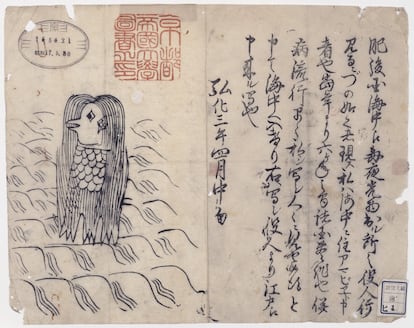 肥後国海中え毎夜光物出ル所之役人行
見るニづの如之者現ス私ハ海中ニ住アマビヱト申
者也当年より六ヶ年之間諸国豊作也併
病流行早々私シ写シ人々ニ見セ候得と
申て海中へ入けり右ハ写シ役人より江戸え
申来ル写也
弘化三年四月中旬
京都
帝國大學
圖書之印